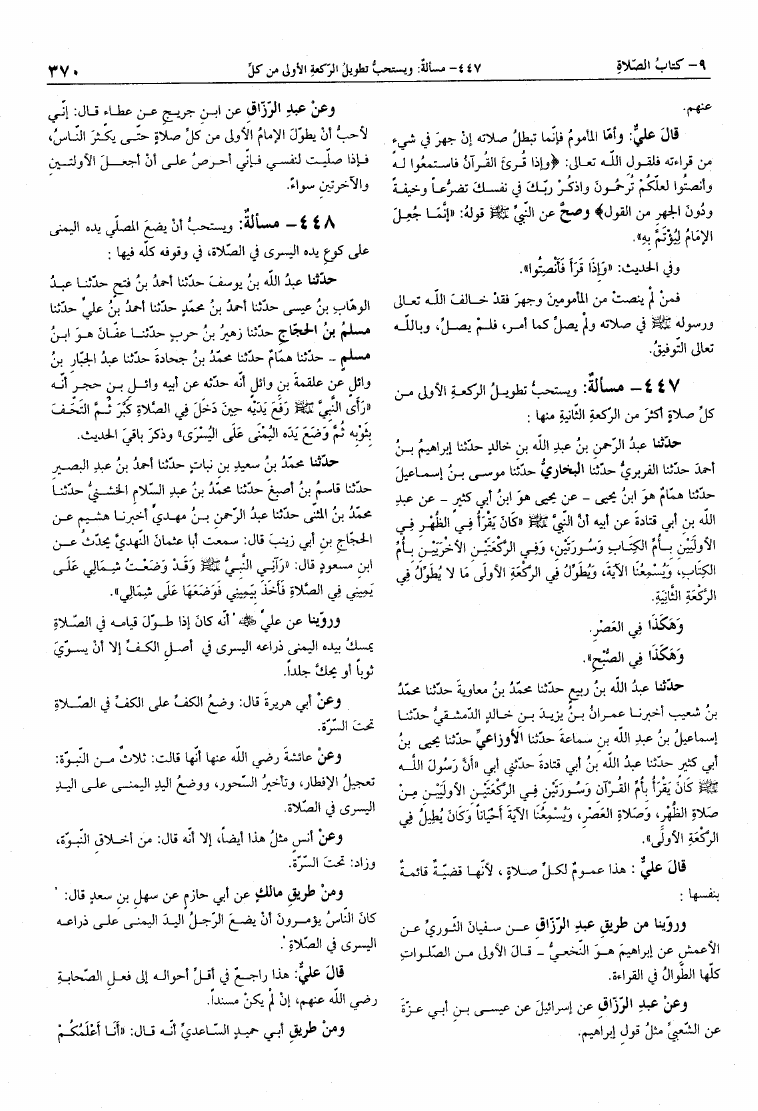 ٩- كتابُ الصَّلاةِ
٤٤٧- مسألةٌ: ويستحبُّ تطويلُ الركعةِ الأولى من كلِّ
٣٧٠
عنهم.
قالَ عليٌّ: وأمّا المأمومُ فإنَّما تبطلُ صلاته إنْ جهرَ في شيءٍ
من قراءته فلقول اللَّـه تعـالى: ﴿وإذا قُـرئَ القُـرآنُ فاستمعُوا لـهُ
وأنصتُوا لعلّكمْ تُرحَمُونَ واذكرْ ربّـكَ في نفسـكَ تضرُّعـاً وخيفـةً
ودُونَ الجهرِ من القول﴾ وصحَّ عن النبيِّ ﷺ قولهُ: «إنَّمَـا جُعِلَ
الإمَامُ لِيُؤْتَمَّ بِهِ».
وفي الحديث: «وَإِذَا قَرَأَ فَأَنْصِتُوا».
فمنْ لم ينصتْ من المأمومينَ وجهرَ فقدْ خـالفَ اللَّـه تعـالى
ورسوله ﷺ في صلاته ولمْ يصلِّ كما أمـر، فلـمْ يصـلِّ، وباللَّـه
تعالى التّوفيقُ.
٤٤٧- مسألةٌ: ويستحبُّ تطويـلُ الركعـةِ الأولى مـن
كلِّ صلاةٍ أكثرَ من الركعةِ الثّانيةِ منها :
حدَّثنا عبدُ الرّحمنِ بنُ عبدِ اللَّه بنِ خالدٍ حدّثنا إبراهيمُ بـنُ
أحمدَ حدّثنا الفربريُّ حدّثنا البخاريُّ حدّثنا موسـى بـنُ إسـماعيلَ
حدّثنا همّامٌ هوَ ابنُ يحيى - عن يحيى هوَ ابنُ أبي كثيرٍ - عن عبدِ
اللَّه بنِ أبي قتادةَ عن أبيه أنَّ النّبيَّ ﷺ «كَانَ يَقْرَأُ فِي الظُّهْرِ فِـي
الأولَيَيْنِ بِـأُمِّ الكِتَـابِ وَسُـورَتَيْنِ، وَفِي الرَّكْعَتَيْنِ الأُخْرَيَيْـنِ بِـأُمِّ
الكِتَابِ، وَيُسْمِعُنَا الآيَةَ، وَيُطَوِّلُ فِي الرَّكْعَةِ الأولَى مَا لا يُطَوِّلُ فِي
الرَّكْعَةِ الثَّانِيَةِ.
وَهَكَذَا فِي العَصْرِ.
وَهَكَذَا فِي الصُّبْحِ».
حدَّثنا عبدُ اللَّه بنُ ربيعٍ حدّثنا محمّدُ بنُ معاويةَ حدّثنا محمّدُ
بنُ شعيبٍ أخبرنـا عمـرانُ بـنُ يزيـدَ بـنِ خـالدٍ الدّمشـقيُّ حدّثنـا
إسماعيلُ بنُ عبدِ اللَّه بنِ سماعةَ حدّثنا الأوزاعيُّ حدّثنا يحيى بنُ
أبي كثيرٍ حدّثنا عبدُ اللَّه بنُ أبي قتادةَ حدّثني أبي «أَنَّ رَسُولَ اللَّـه
ﷺ كَانَ يَقْرَأُ بِأُمِّ القُرْآنِ وَسُـورَتَيْنِ فِـي الرَّكْعَتَيْنِ الأوليَيْـنِ مِـنْ
صَلاةِ الظُّهْرِ، وَصَلاةِ العَصْرِ، وَيُسْمِعُنَا الآيَةَ أَحْيَاناً وَكَانَ يُطِيلُ فِي
الرَّكْعَةِ الأولَى».
قالَ عليٌّ : هذا عمـومٌ لكـلِّ صـلاةٍ ، لأنّهـا قضيّـةٌ قائمـةٌ
بنفسها :
وروّينا من طريقِ عبدِ الرّزّاقِ عـن سـفيانَ الثّـوريِّ عـن
الأعمشِ عن إبراهيمَ هـوَ النّخعـيُّ - قـالَ الأولى مـن الصّلـواتِ
كلّها الطّوالُ في القراءة.
وعنْ عبدِ الرّزّاقِ عن إسرائيلَ عن عيسـى بـنِ أبـي عـزّةَ
عن الشّعبيِّ مثلُ قولِ إبراهيم.
وعنْ عبدِ الرّزّاقِ عن ابـنِ جريـجٍ عـن عطـاء قـال: إنّـي
لأحبُّ أنْ يطوّلَ الإمامُ الأولى من كلِّ صلاةٍ حتّـى يكـثرَ النّـاسُ،
فـإذا صلّيـت لنفسـي فـإنّي أحـرصُ علـى أنْ أجعـلَ الأولتـينِ
والآخرتينِ سواءً.
٤٤٨- مسألةٌ: ويستحبُّ أنْ يضعَ المصلّي يده اليمنى
على كوعِ يده اليسرى في الصّلاة، في وقوفه كلّه فيها :
حدَّثنا عبدُ اللَّه بنُ يوسفَ حدّثنا أحمدُ بنُ فتحٍ حدّثنـا عبـدُ
الوهّابِ بنُ عيسى حدّثنا أحمدُ بنُ محمّدٍ حدّثنا أحمدُ بنُ عليٍّ حدّثنا
مسلمُ بنُ الحجّاجِ حدّثنا زهيرُ بنُ حربٍ حدّثنـا عفّـانُ هـوَ ابـنُ
مسلمٍ - حدّثنا همّامٌ حدّثنا محمّدُ بنُ جحادةَ حدّثنا عبدُ الجبّارِ بنُ
وائلٍ عن علقمةَ بنِ وائلٍ أنّه حدّثه عن أبيه وائـلِ بـنِ حجـرٍ أنّـه
«رَأَى النَّبِيَّ ﷺ رَفَعَ يَدَيْهِ حينَ دَخَلَ فِي الصَّلاةِ كَبَّرَ ثُـمَّ التَحَـفَ
بِثَوْبِهِ ثُمَّ وَضَعَ يَدَه اليُمْنَى عَلَى اليُسْرَى» وذكرَ باقيَ الحديث.
حدَّثنا محمّدُ بنُ سعيدِ بنِ نباتٍ حدّثنا أحمدُ بنُ عبدِ البصـيرِ
حدّثنا قاسمُ بنُ أصبغَ حدّثنا محمّدُ بنُ عبدِ السّلامِ الخشـنيُّ حدّثنـا
محمّدُ بنُ المثنّى حدّثنا عبدُ الرّحمنِ بـنُ مهـديٍّ أخبرنـا هشـيم عـن
الحجّاجِ بنِ أبي زينبَ قال: سمعت أبا عثمانَ النّهديَّ يحدّثُ عـن
ابنِ مسعودٍ قال: «رَآنِـي النَّبِـيُّ ﷺ وَقَـدْ وَضَعْـتُ شِـمَالِي عَلَـى
يَمِينِي فِي الصَّلاةِ فَأَخَذَ بِيَمِينِي فَوَضَعَهَا عَلَى شِمَالِي».
وروّينا عن عليٍّ ﷺ أنّه كانَ إذا طـوّلَ قيامـه في الصّـلاةِ
يمسكُ بيده اليمنى ذراعه اليسرى في أصـلِ الكـفِّ إلا أنْ يسـوّيَ
ثوباً أو يحكَّ جلداً.
وعنْ أبي هريرةَ قال: وضعُ الكفِّ على الكفِّ في الصّـلاةِ
تحتَ السّرّة.
وعنْ عائشةَ رضي الله عنها أنّها قالت: ثلاثٌ مـن النّبـوّة:
تعجيلُ الإفطار، وتأخيرُ السّحور، ووضعُ اليدِ اليمنـى علـى اليـدِ
اليسرى في الصّلاة.
وعنْ أنسٍ مثلُ هذا أيضاً، إلا أنّه قال: من أخـلاقِ النّبـوّة،
وزاد: تحتَ السّرّة.
ومنْ طريقِ مالكٍ عن أبي حازمٍ عن سهلِ بنِ سعدٍ قال:
كانَ النّاسُ يؤمـرونَ أنْ يضعَ الرّجـلُ اليـدَ اليمنـى علـى ذراعـه
اليسرى في الصّلاةِ.
قالَ عليٌّ: هذا راجـعٌ في أقـلِّ أحوالـه إلى فعـلِ الصّحابـةِ
رضي الله عنهم، إنْ لمْ يكنْ مسنداً.
ومنْ طريقِ أبـي حميـدٍ السّـاعديِّ أنّـه قـال: «أَنَـا أَعْلَمُكُـمْ